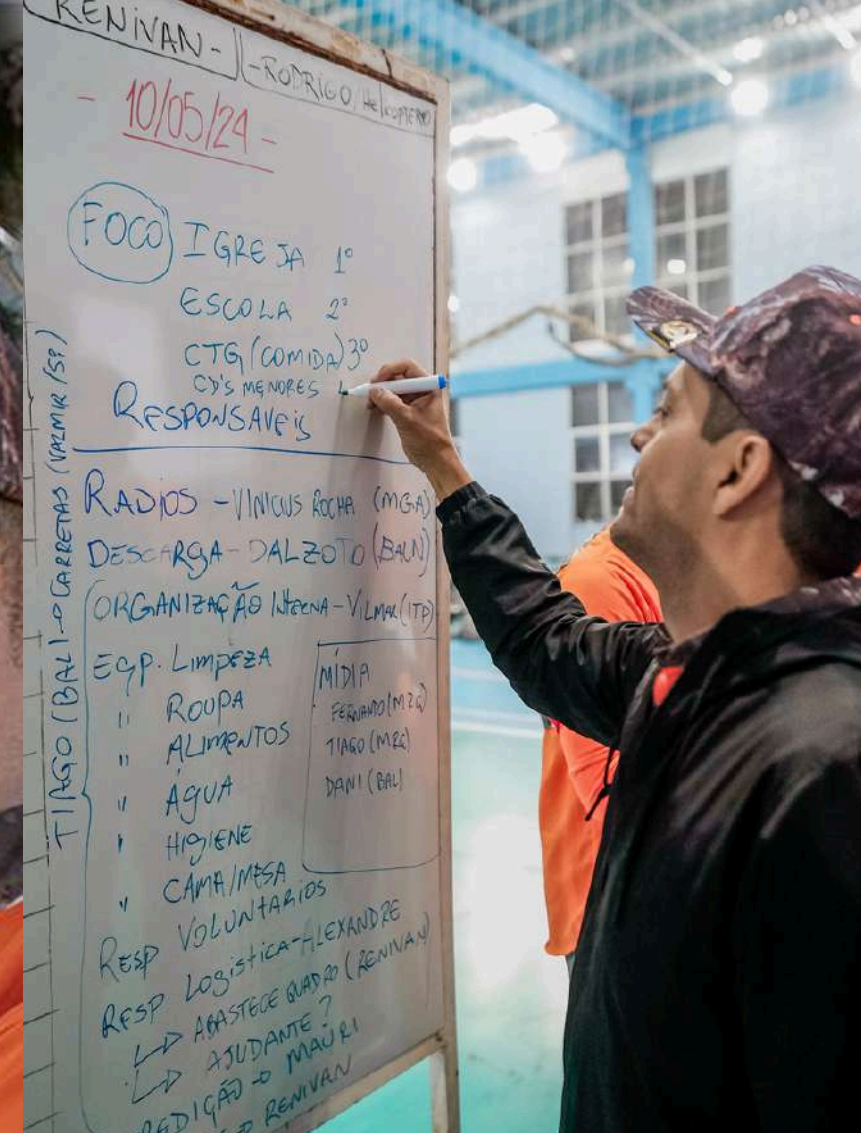 RENIVAN -
- RODRIGO/HELICOPTERO
- 10/05/24 -
FOCO IGREJA 1º
ESCOLA 2º
CTG (COMIDA) 3º
CD'S MENORES
RESPONSAVEIS
RADIOS - VINICIUS ROCHA (MGA)
DESCARGA - DALZOTO (BALN)
ORGANIZAÇÃO INTERNA - VILMAR (ITP)
EQP. LIMPEZA
" ROUPA
" ALIMENTOS
" ÁGUA
" HIGIENE
" CAMA/MESA
RESP VOLUNTARIOS
RESP LOGISTICA - ALEXANDRE
↳ ABASTECE QUADRO (RENIVAN)
↳ AJUDANTE?
MAURI
RENIVAN
MÍDIA
FERNANDO
TIAGO
DANI (BAL)
TIAGO (BAL) → CARRETAS (VALMIR